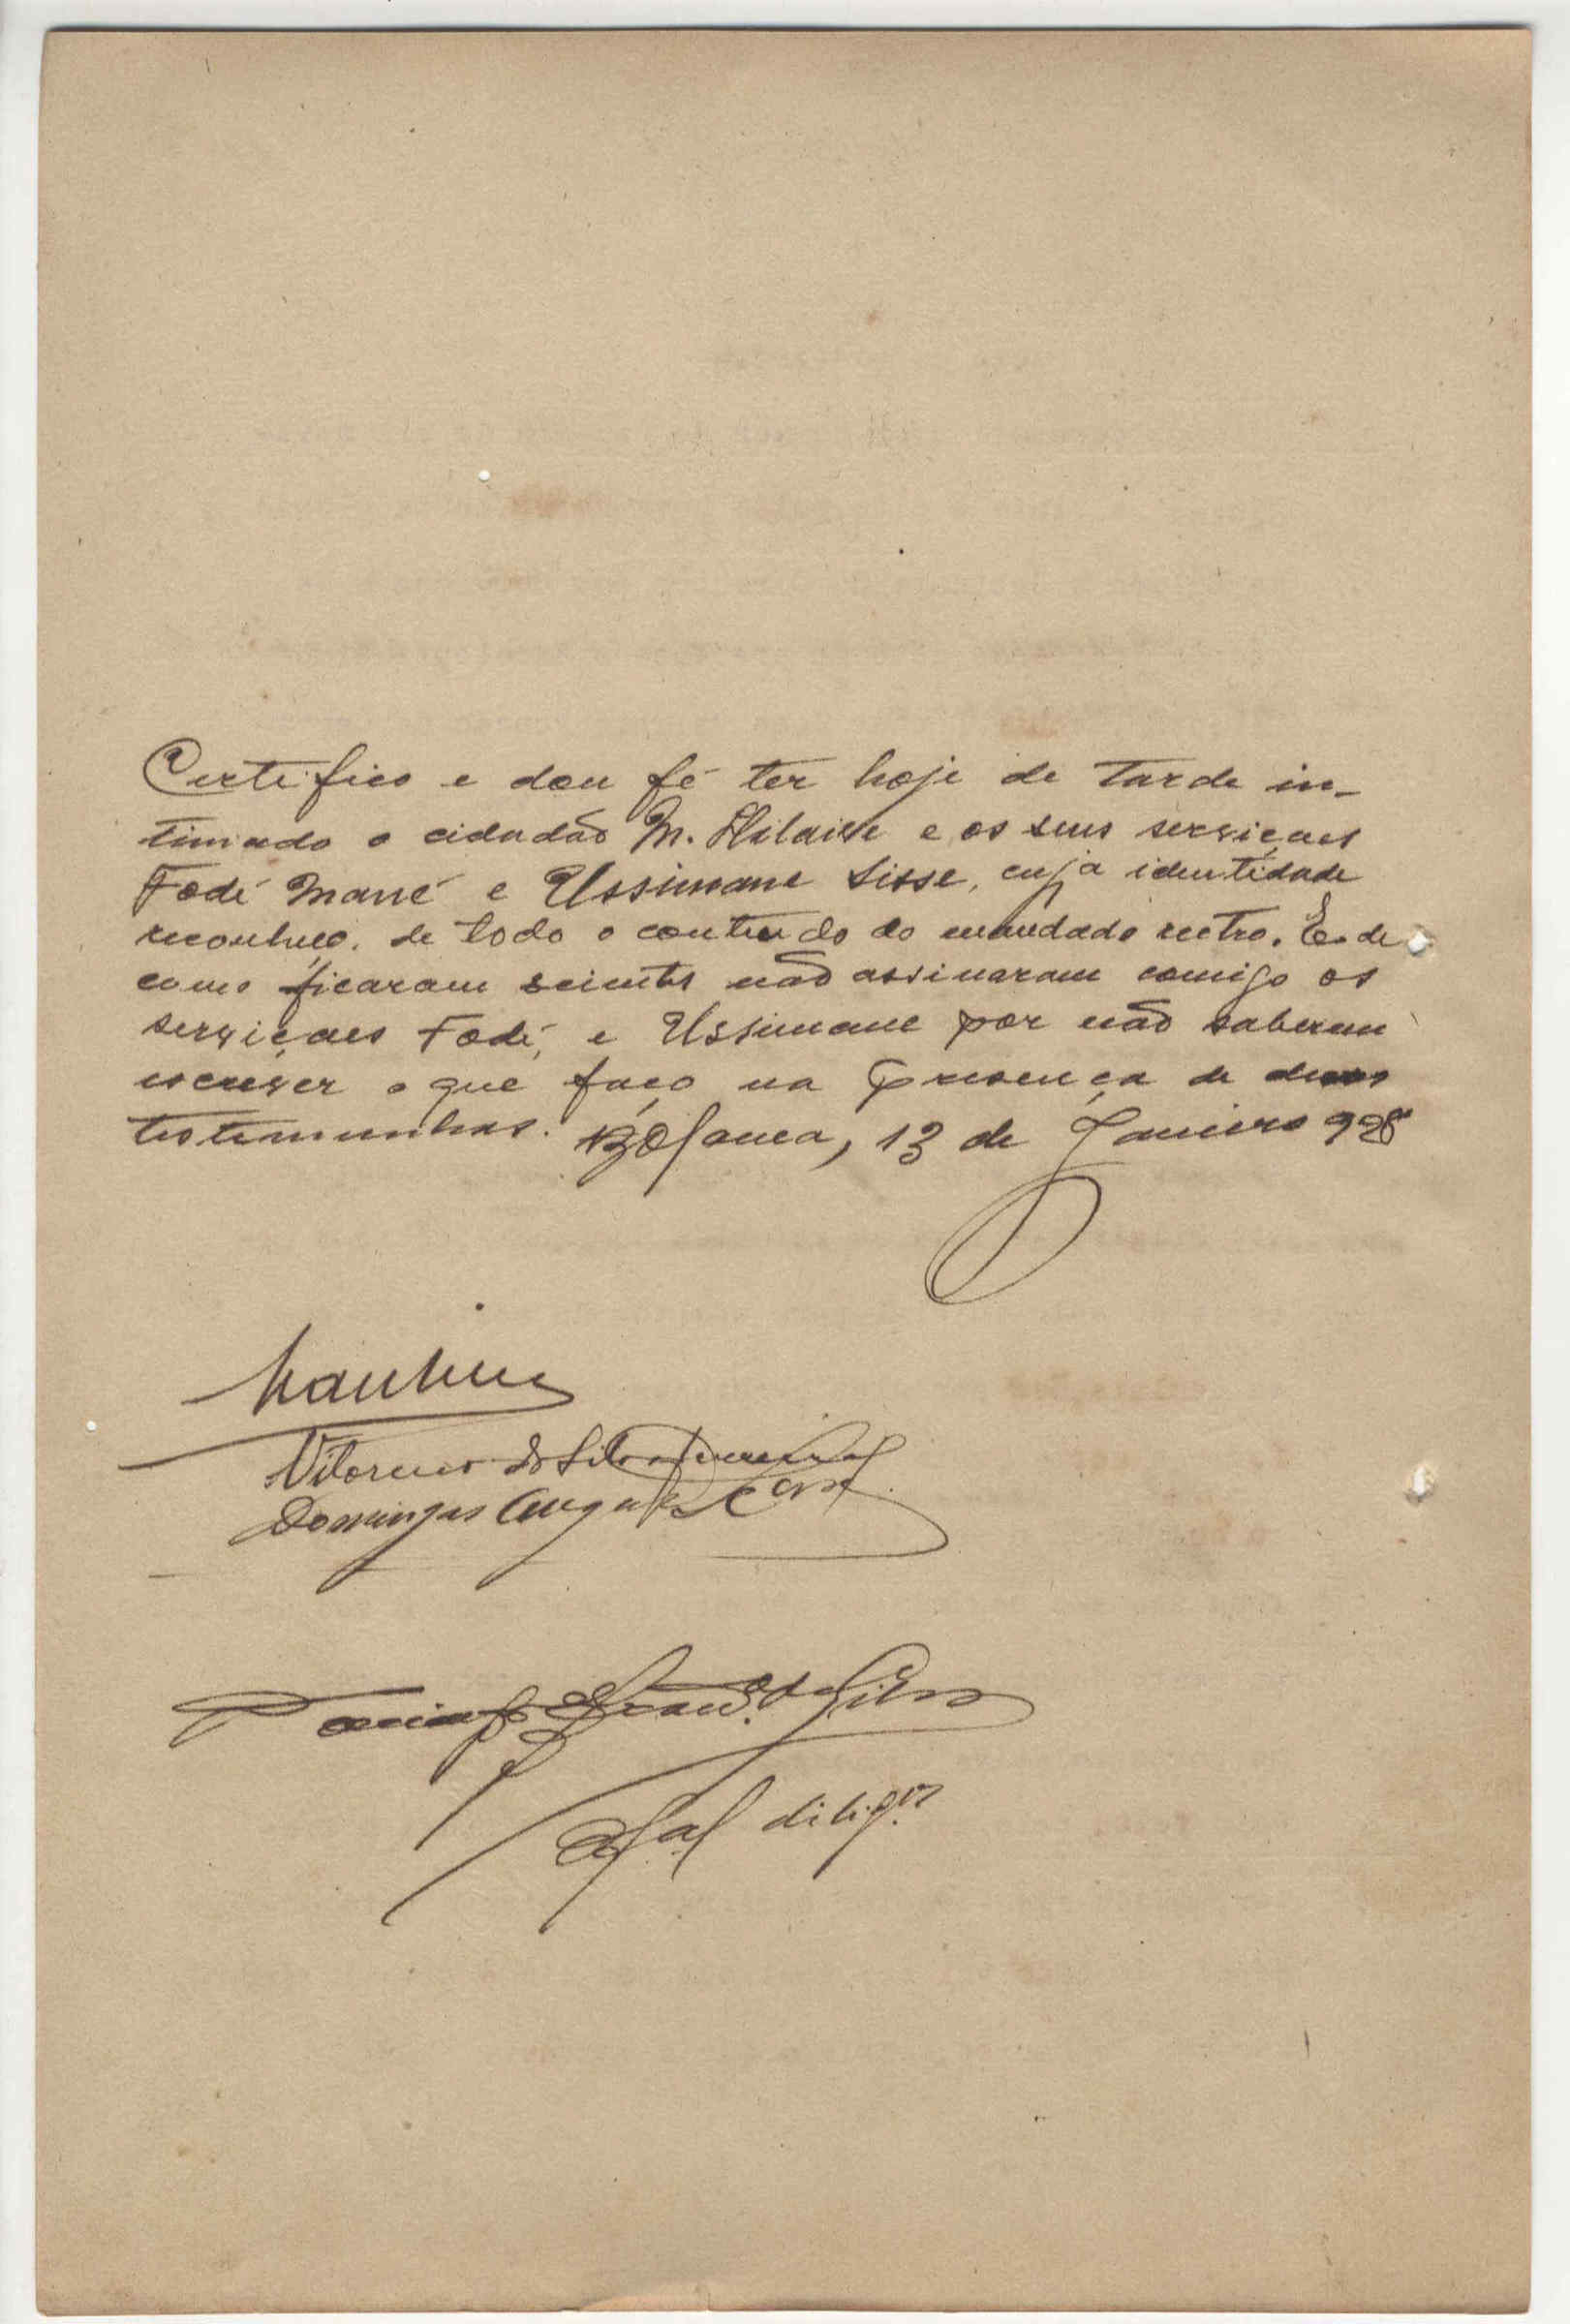 Certifico e dou fé ter hoje de tarde in-
timado o cidadão M. Hilaire e os seus serviçaes
Fodé Mané e Ussumane Sisse, cuja identidade
reconheço, de todo o conteudo do mandado rectro. E de
como ficaram scientes não assinaram comigo os
serviçaes Fodé, e Ussumane por não saberem
escrever o que faço na presença de duas
testemunhas. Bolama, 13 de Janeiro 928
Vitorino da Silva
Domingos Augusto
da Silva
Of. al dilig.as